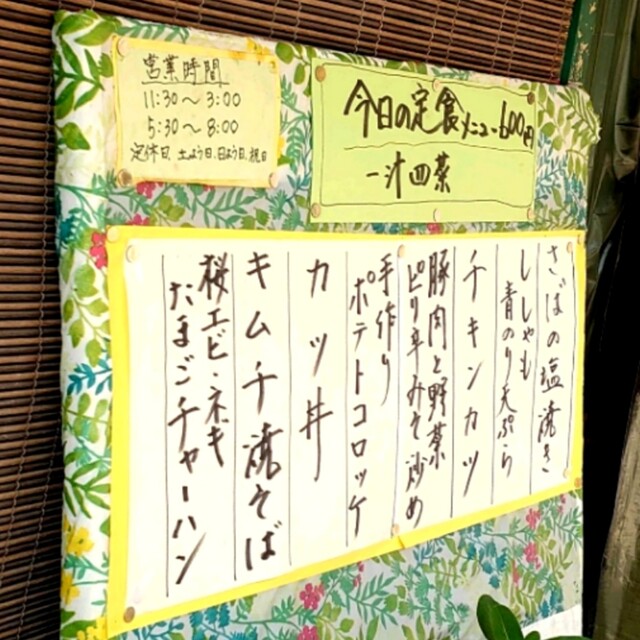 営業時間
11:30～3:00
5:30～8:00
定休日、土よう日、日よう日、祝日
今日の定食メニュー600円
一汁四菜
さばの塩焼き
ししゃも
青のり天ぷら
チキンカツ
豚肉と野菜
ピリ辛みそ炒め
手作り
ポテトコロッケ
カツ丼
キムチ焼そば
桜エビ・ネギ
たまごチャーハン